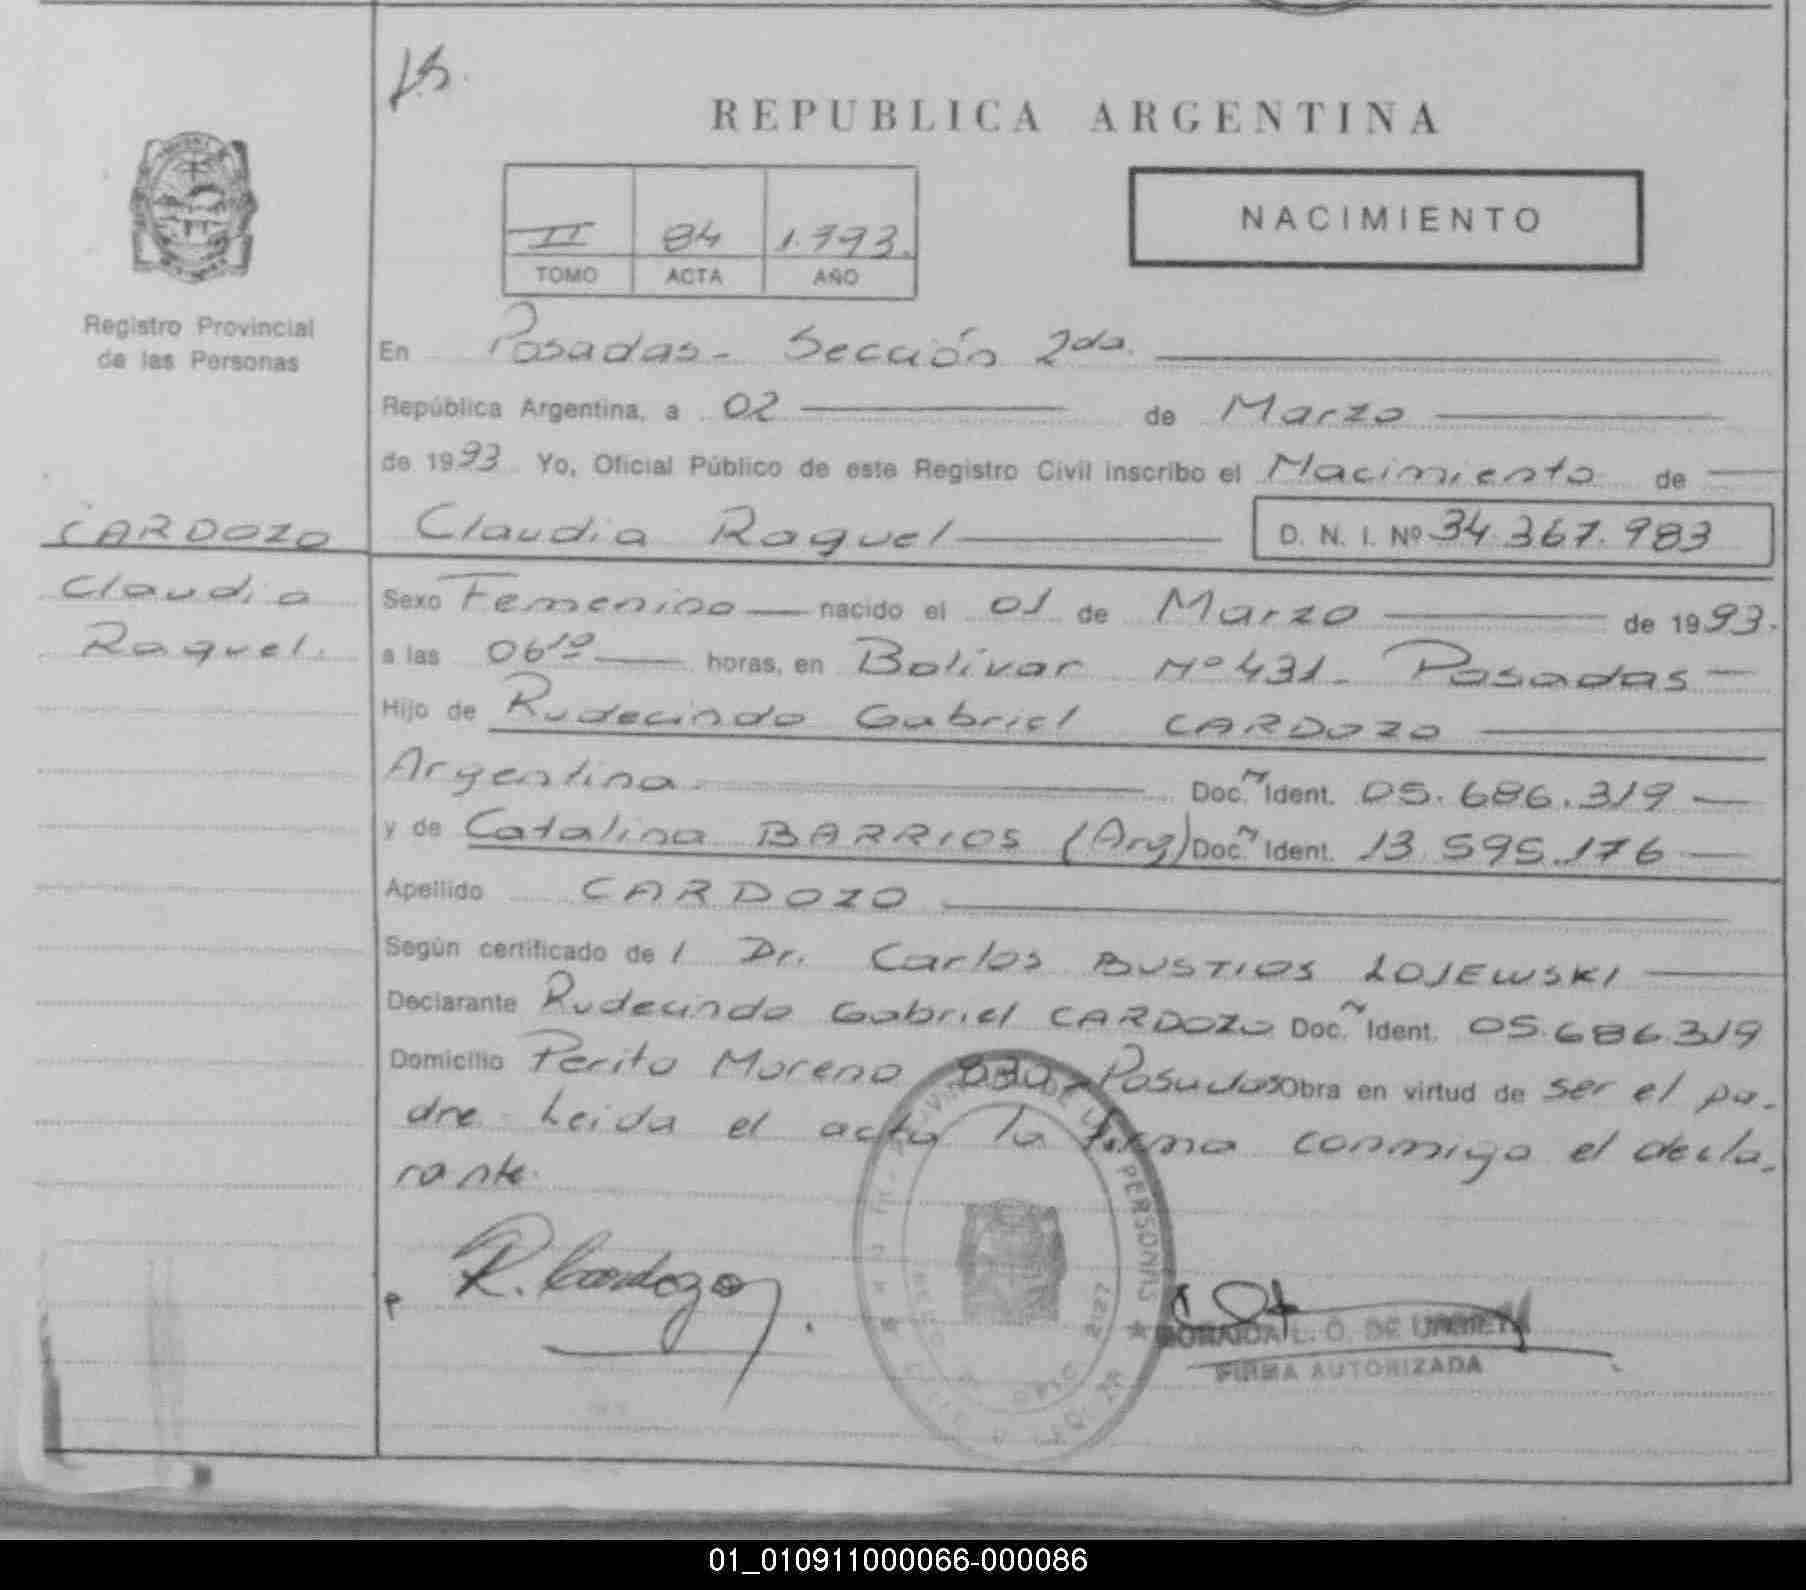 REPUBLICA ARGENTINA
NACIMIENTO
II 84 1.993.
TOMO ACTA AÑO
Registro Provincial
de las Personas
CARDOZO
Claudia
Raquel.
En Posadas - Sección 2da.
República Argentina, a 02 de Marzo
de 1993 Yo, Oficial Público de este Registro Civil inscribo el Nacimiento de
Claudia Raquel D. N. I. Nº 34.367.983
Sexo Femenino nacido el 01 de Marzo de 1993.
a las 06¹⁰ horas, en Bolivar Nº 431 - Posadas
Hijo de Rudecindo Gabriel CARDOZO
Argentina Doc. Ident. 05.686.319
y de Catalina BARRIOS (Arg) Doc. Ident. 13.595.176
Apellido CARDOZO
Según certificado de l Dr. Carlos BUSTIOS LOJEWSKI
Declarante Rudecindo Gabriel CARDOZO Doc. Ident. 05.686.319
Domicilio Perito Moreno - Posadas Obra en virtud de ser el pa-
dre. Leida el acta la firma conmigo el decla-
rante.
R. Cardozo
PERSONAS
L. O. DE
FIRMA AUTORIZADA
01_010911000066-000086